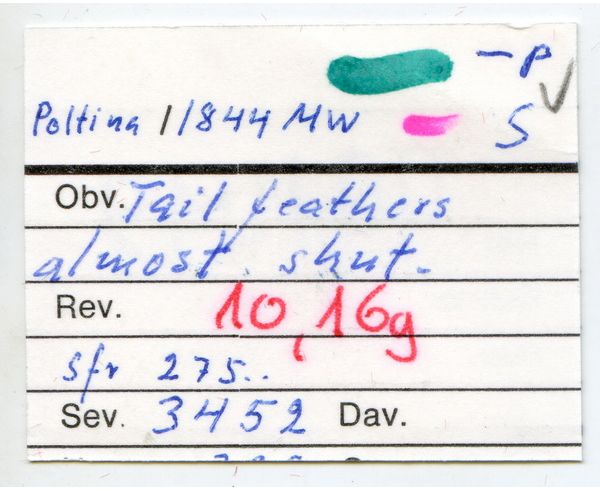 – P
Poltina 1/1844 MW S
Obv. Tail feathers
almost shut.
Rev. 10,16g
sfr 275..
Sev. 3452 Dav.